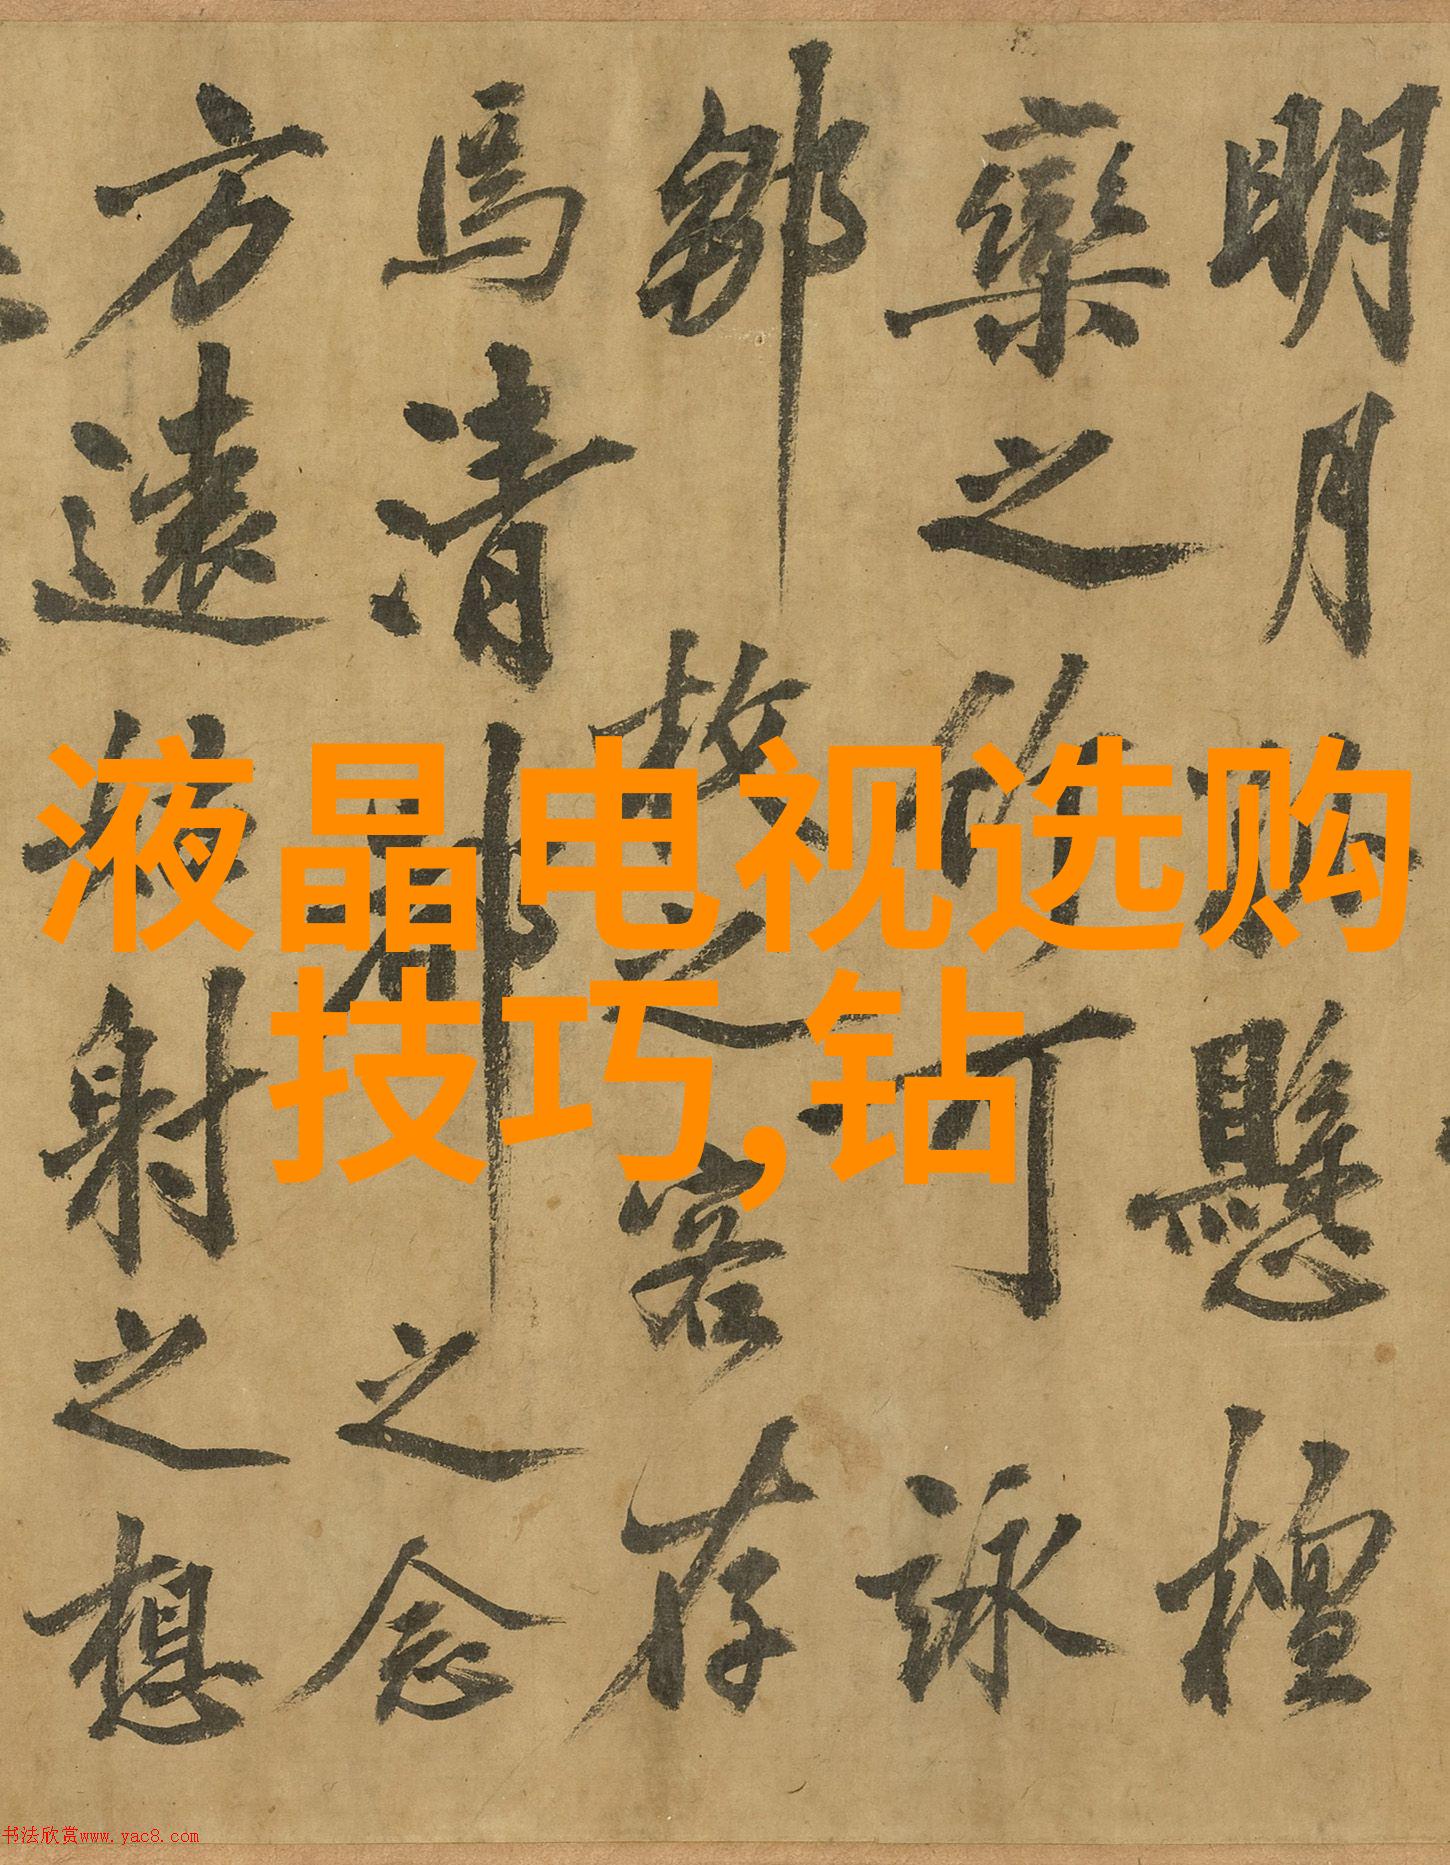 明月懸檀
欒之可詠
鄒枚之客存
馬清都之念
方遠射之想
液晶电视选购
技巧,钻
书法欣赏www.yac8.com